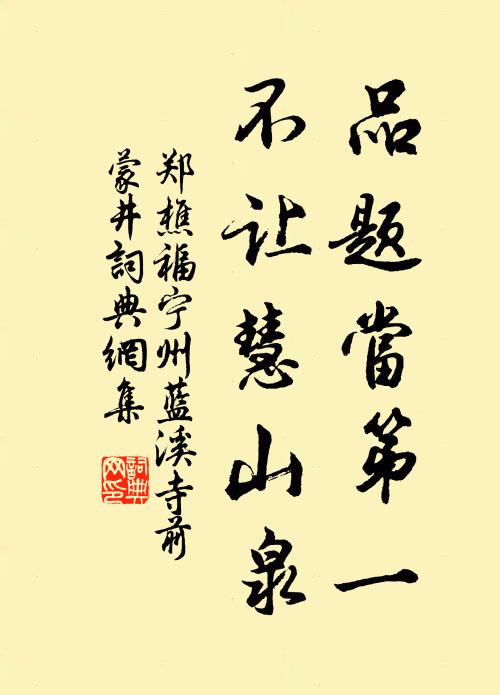 品题當第一
不让慧山泉
郑樵福宁州蓝溪寺前
蒙井詞典網集
詞典網印